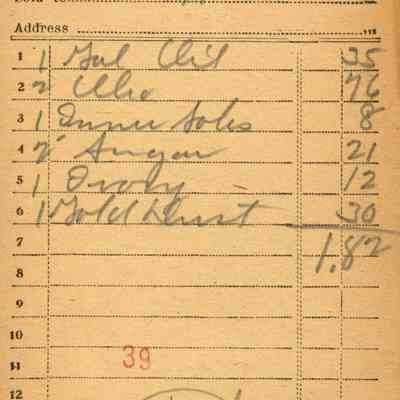 Address
1 1 Gal Oil 35
2 2 76
3 1 Inner Soles 8
4 2 Sugar 21
5 1 Ivory - 12
6 1 Gold Dust 30
7 1.82
8
9
10
11 39
12